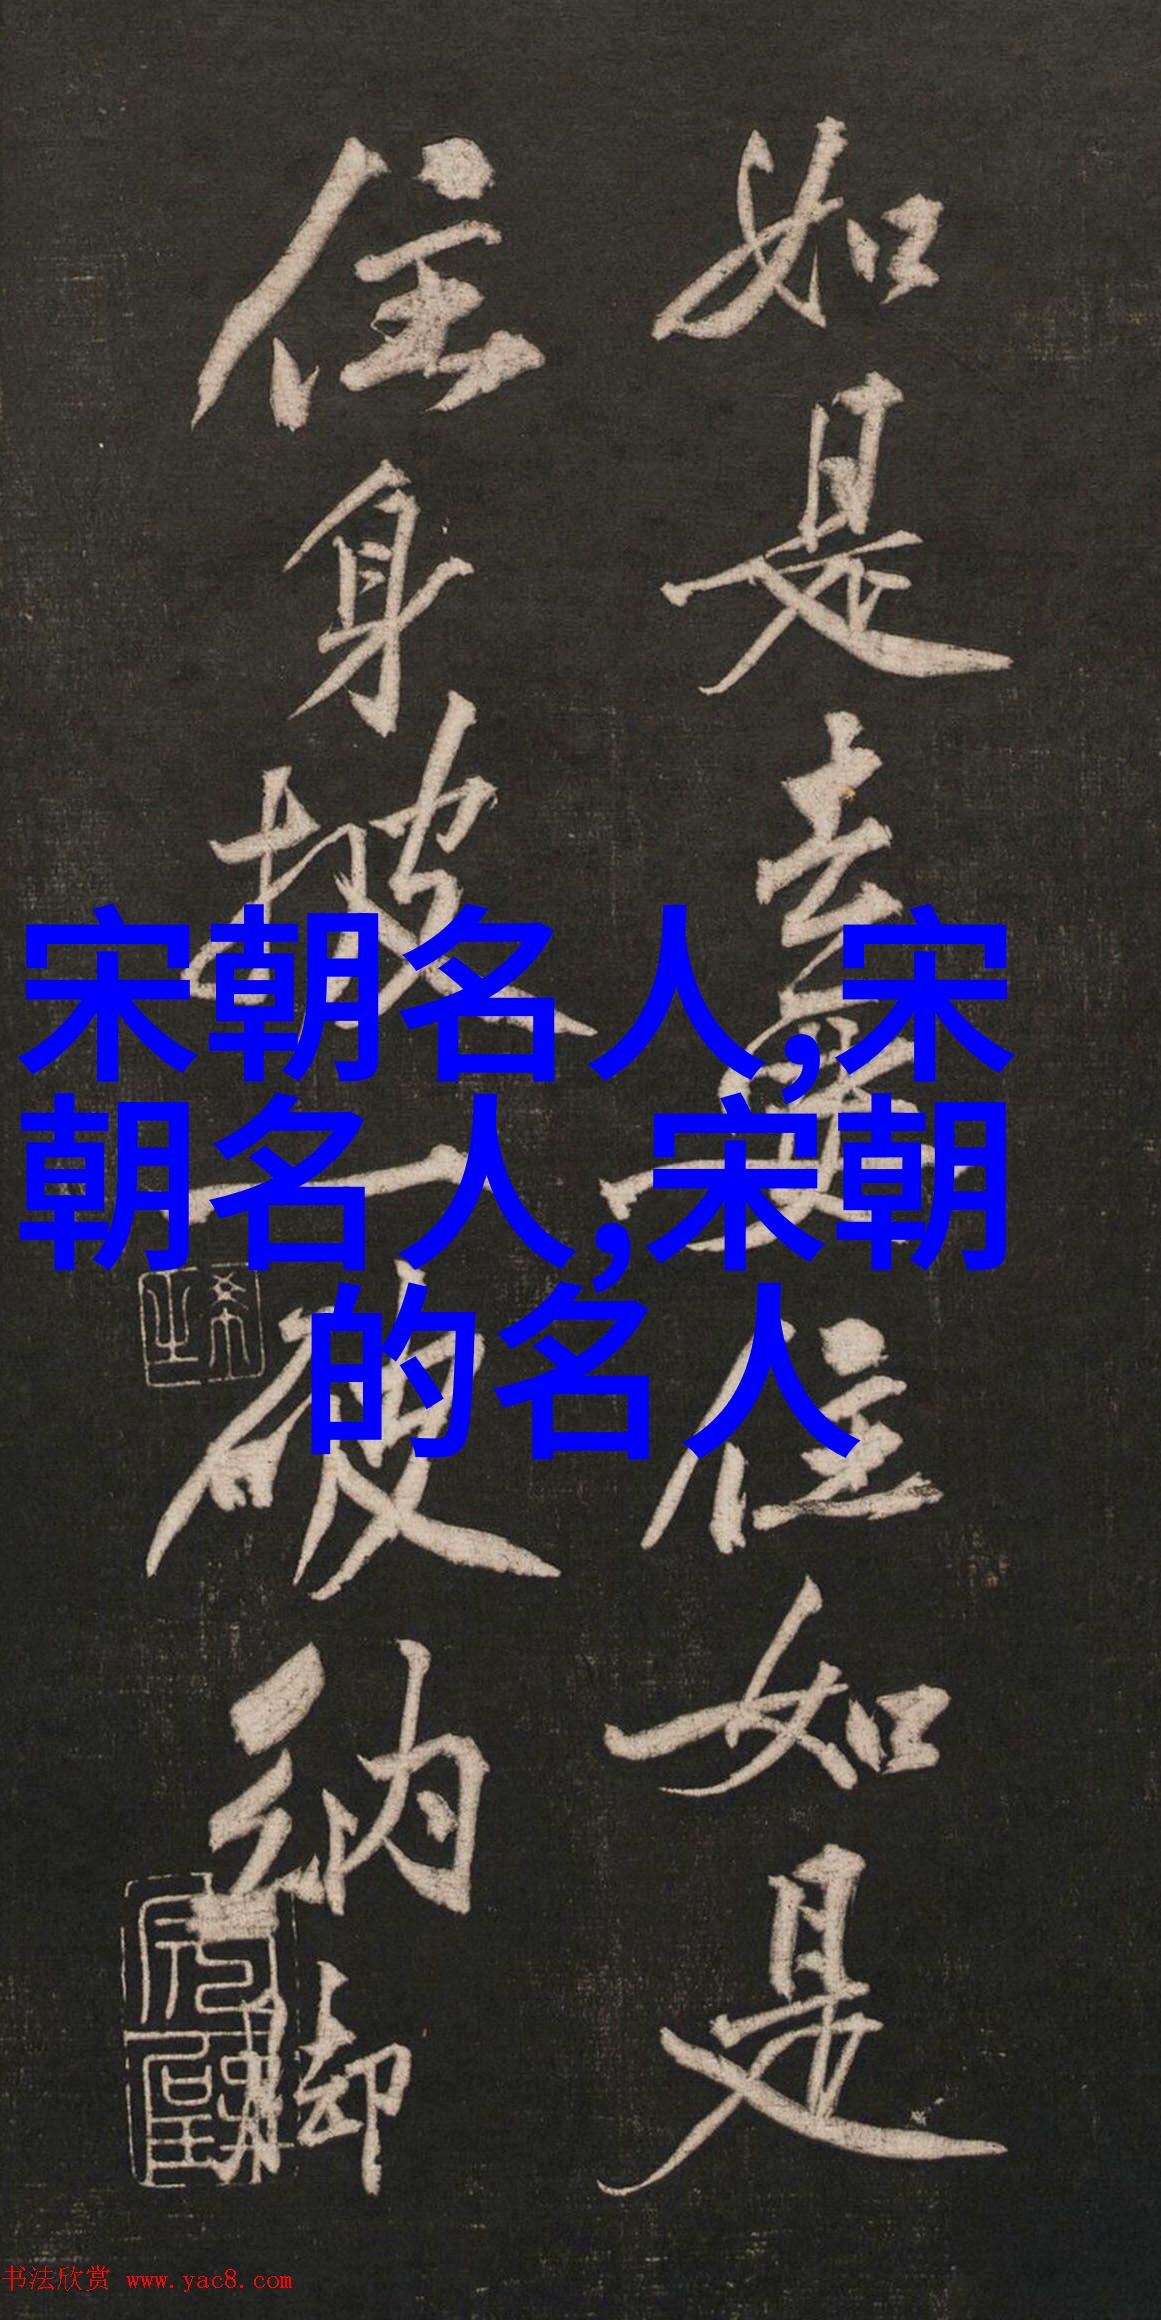 如是去要住如是
住身披一破衲脚
宋朝名人,宋
朝名人,宋朝
的名人
书法欣赏 www.yac8.com